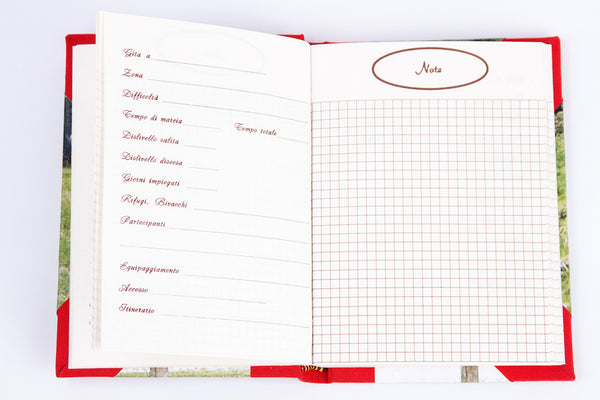 Gita a
Zona
Difficoltà
Tempo di marcia
Tempo totale
Dislivello salita
Dislivello discesa
Giorni impiegati
Rifugi, Bivacchi
Partecipanti
Equipaggiamento
Accesso
Itinerario
Note